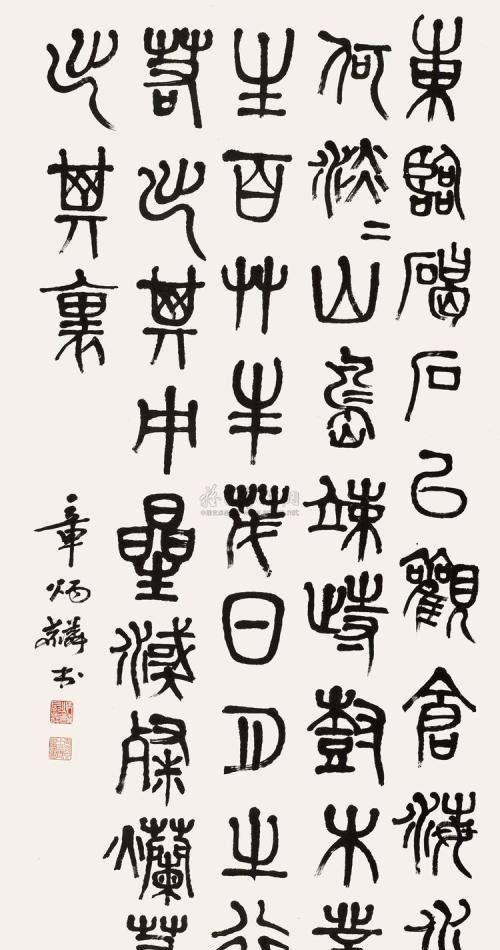 東臨碣石以觀倉海水
何淡二山島竦峙尌木
生百艸丰茂日月之行
若出其中星漢粲爛若
出其裏
章炳麟書